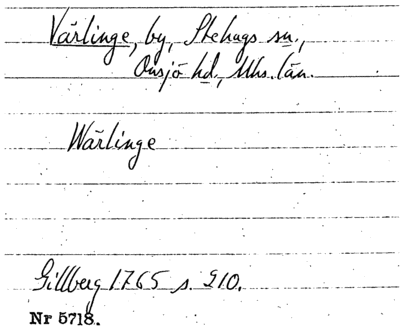 Värlinge, by, Stehags sn.,
Onsjö hd., Mhs. län.
Wärlinge
Gillberg 1765 s. 210.
Nr 5718.